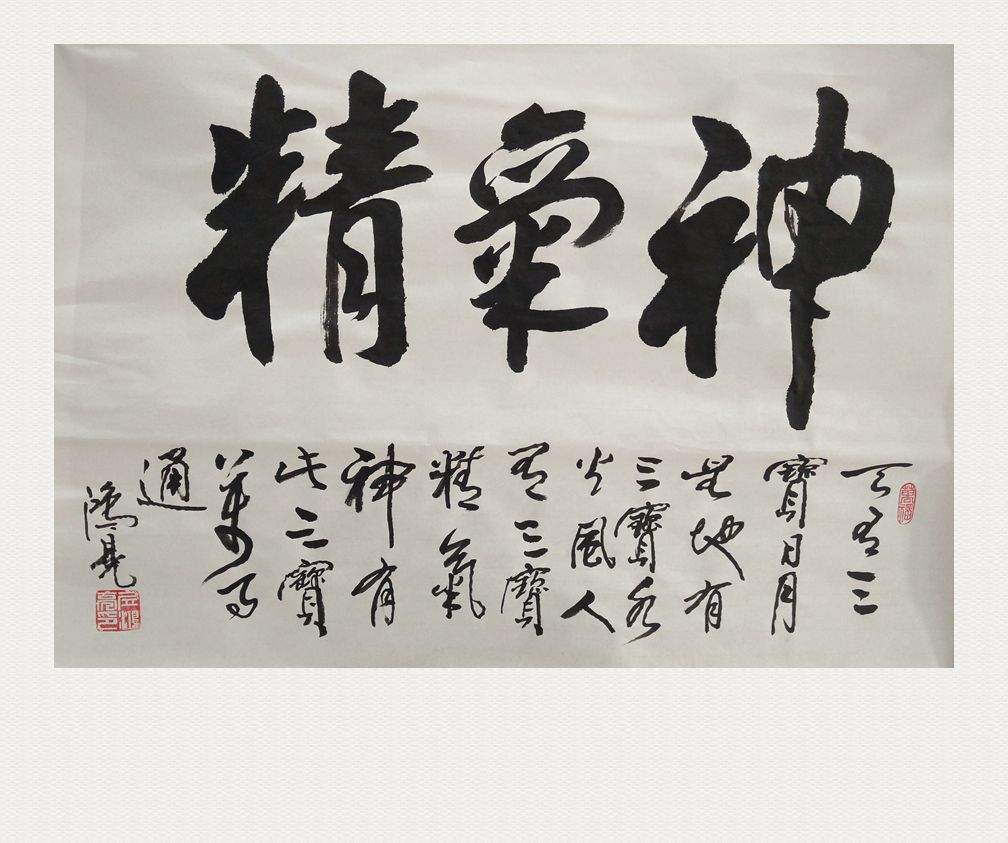 精氣神
天有三
寶日月
星地有
三寶水
火風人
有三寶
精氣
神有
此三寶
通
鴻亮